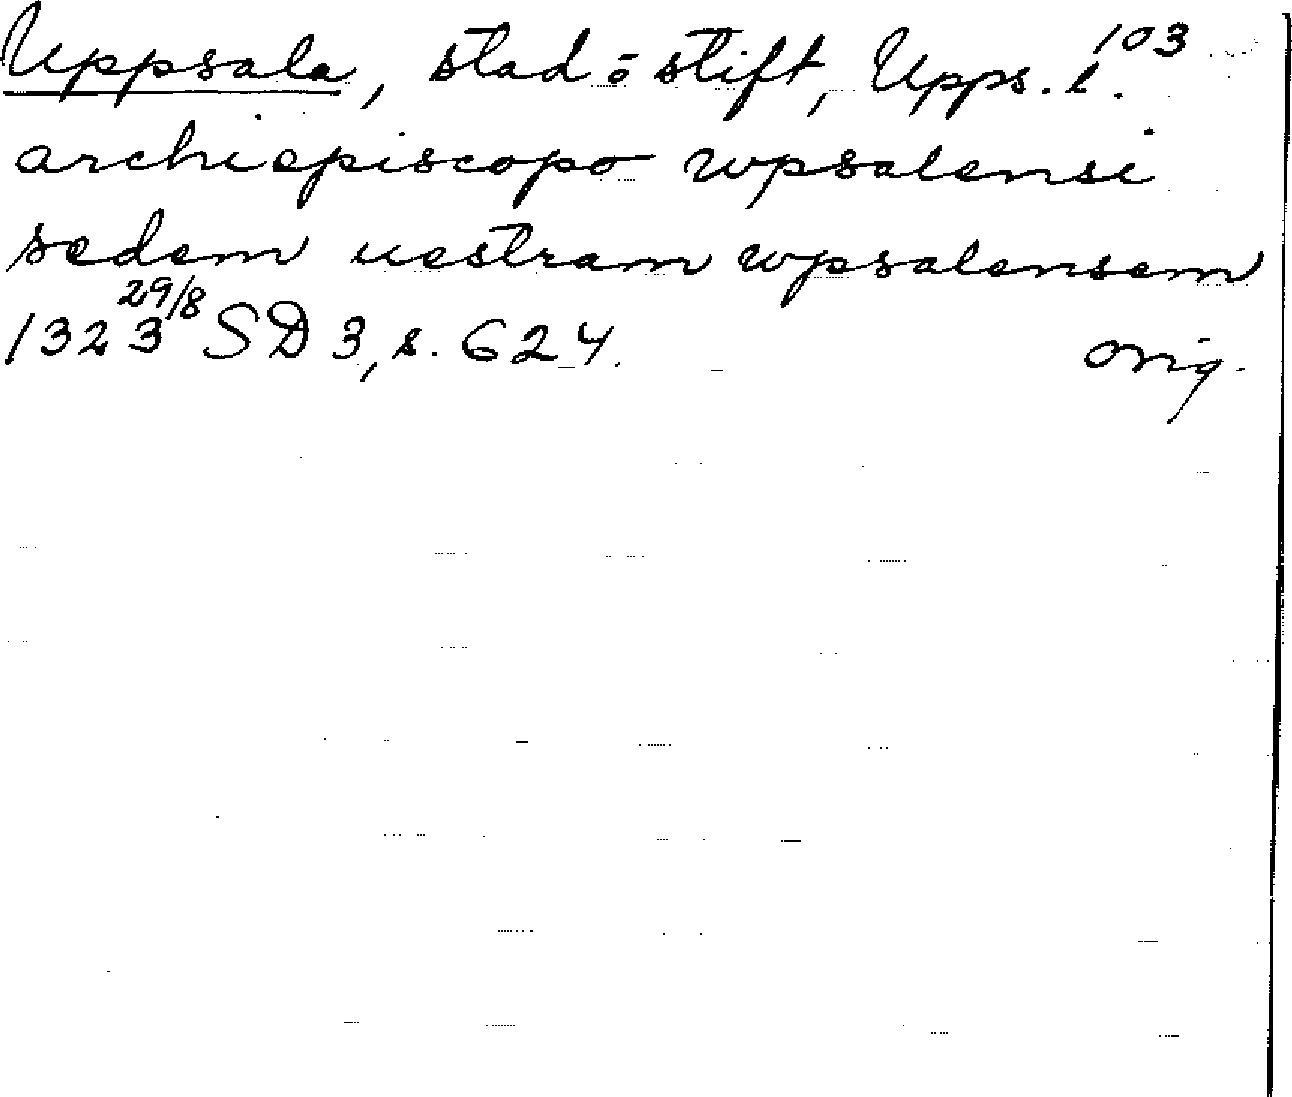 Uppsala, stad o stift, Upps. l. 103
archiepiscopo wpsalensi
sedem uestram wpsalensem
1323 29/8 SD 3, s. 624. orig.